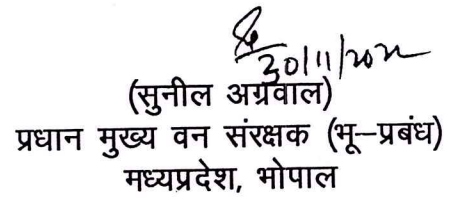 30/11/2022
(सुनील अग्रवाल)
प्रधान मुख्य वन संरक्षक (भू–प्रबंध)
मध्यप्रदेश, भोपाल